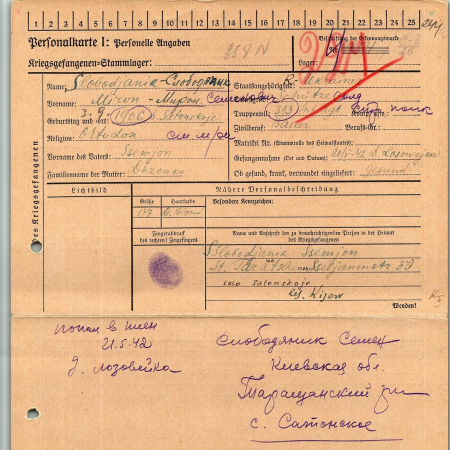 1 2 3 4 5 6 7 8 9 10 11 12 13 14 15 16 17 18 19 20 21 22 23 24 25
Personalkarte I: Personelle Angaben
Beschriftung der Erkennungsmarke
Kriegsgefangenen-Stammlager:
Lager:
Name: Slobodjanik - Слободяник
Staatsangehörigkeit:
Vorname: Miron - Мирон Семенович
Geburtstag und -ort: 3. 9. 1906 Satonskoje
Truppenteil: 383
Religion: Ortodox
Zivilberuf: Bauer Berufs-Gr.:
Matrikel Nr.
Vorname des Vaters: Ssemjon
Gefangennahme (Ort und Datum):
Familienname der Mutter:
Ob gesund, krank, verwundet eingeliefert: gesund
des Kriegsgefangenen
Lichtbild
Nähere Personalbeschreibung
Größe
Haarfarbe
Besondere Kennzeichen:
177
Fingerabdruck
des rechten Zeigefingers
Name und Anschrift der zu benachrichtigenden Person in der Heimat
des Kriegsgefangenen
Slobodjanik Ssemjon
selo Satonskoje
Kijew
Wenden!
попал в плен
21.5.42
д. лозовейка
Слободяник Семен
Киевская обл.
Таращанский р-н
с. Сатонское